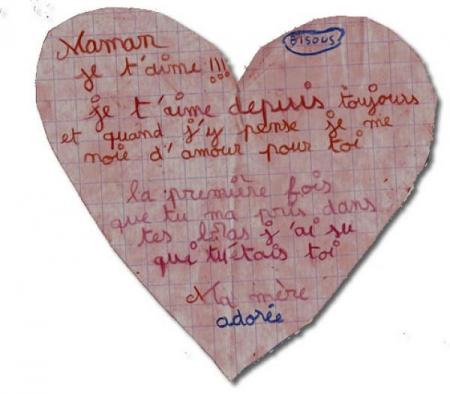 Maman
bisous
je t'aime !!!
je t'aime depuis toujours
et quand j'y pense je me
noie d'amour pour toi
la première fois
que tu ma pris dans
tes bras j'ai su
qui tu étais toi
Ma mère
adorée